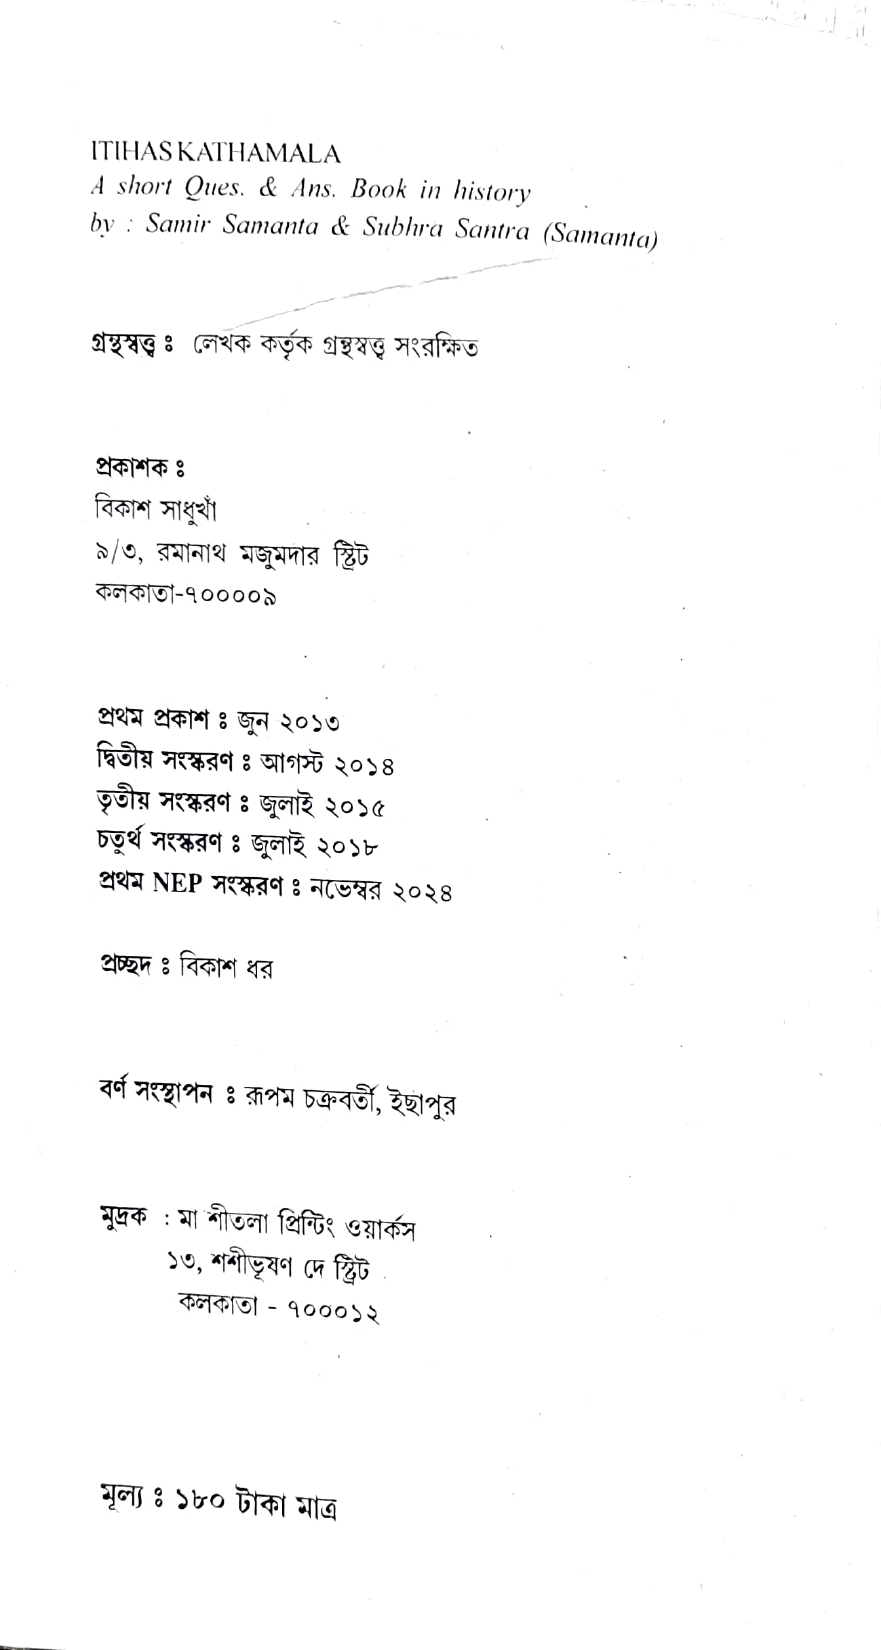 ITIHAS KATHAMALA
A short Ques. & Ans. Book in history
by : Samir Samanta & Subhra Santra (Samanta)
গ্রন্থস্বত্ত্ব ঃ লেখক কর্তৃক গ্রন্থস্বত্ত্ব সংরক্ষিত
প্রকাশক ঃ
বিকাশ সাধুখাঁ
৯/৩, রমানাথ মজুমদার স্ট্রিট
কলকাতা-৭০০০০৯
প্রথম প্রকাশ ঃ জুন ২০১৩
দ্বিতীয় সংস্করণ ঃ আগস্ট ২০১৪
তৃতীয় সংস্করণ ঃ জুলাই ২০১৫
চতুর্থ সংস্করণ ঃ জুলাই ২০১৮
প্রথম NEP সংস্করণ ঃ নভেম্বর ২০২৪
প্রচ্ছদ ঃ বিকাশ ধর
বর্ণ সংস্থাপন ঃ রূপম চক্রবর্তী, ইছাপুর
মুদ্রক : মা শীতলা প্রিন্টিং ওয়ার্কস
১৩, শশীভূষণ দে স্ট্রিট
কলকাতা - ৭০০০১২
মূল্য ঃ ১৮০ টাকা মাত্র